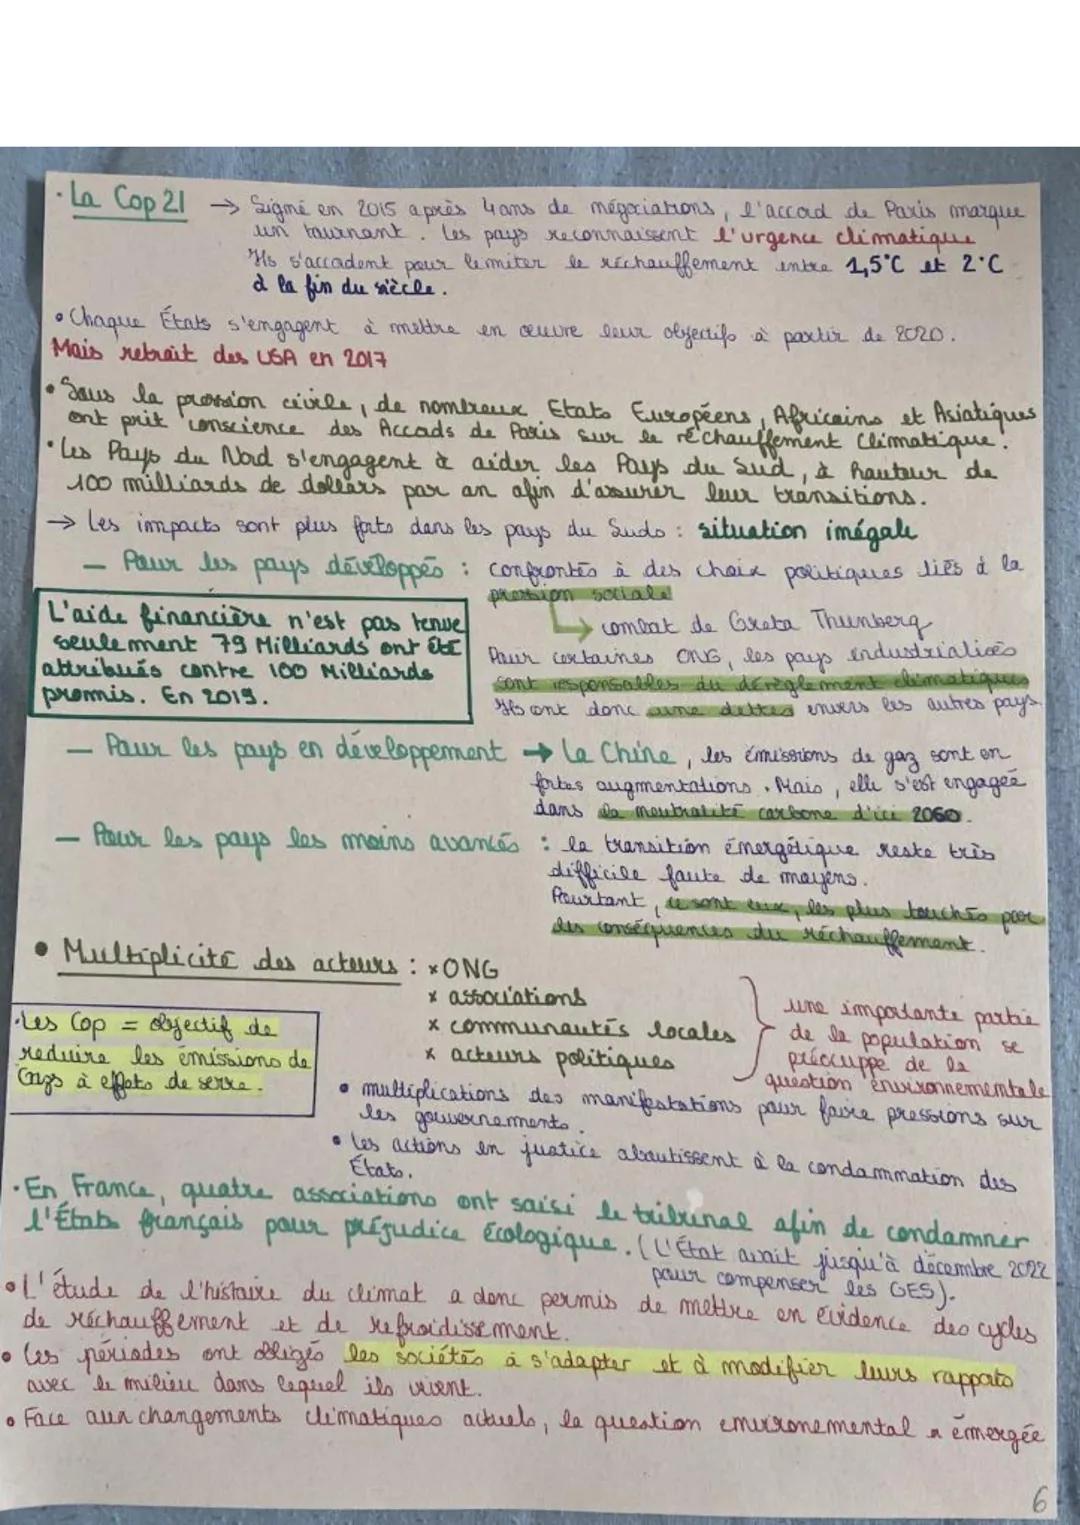 · La Cop 21 → Signé en 2015 après 4 ans de négociations, l'accord de Paris marque
un tournant. Les pays reconnaissent l'urgence climatique
Ils s'accordent pour limiter le réchauffement entre 1,5°C et 2°C
à la fin du siècle.
• Chaque États s'engagent à mettre en œuvre leur objectifs à partir de 2020.
Mais retrait des USA en 2017
• Sous la pression civile, de nombreux Etats Européens, Africains et Asiatiques
ont prit conscience des Accords de Paris sur le réchauffement Climatique.
• Les Pays du Nord s'engagent à aider les Pays du Sud, à hauteur de
100 milliards de dollars par an afin d'assurer leur transitions.
→ Les impacts sont plus forts dans les pays du Suds : situation inégale
— Pour les pays développés : confrontés à des choix politiques liés à la
pression sociale
↳ combat de Greta Thunberg
Pour certaines ONG, les pays industrialisés
sont responsables du dérèglement climatiques
Ils ont donc une dettes envers les autres pays.
L'aide financière n'est pas tenue
seulement 79 Milliards ont été
attribués contre 100 Milliards
promis. En 2019.
— Pour les pays en développement → La Chine, les émissions de gaz sont en
fortes augmentations. Mais, elle s'est engagée
dans la neutralité carbone d'ici 2060.
— Pour les pays les moins avancés : la transition énergétique reste très
difficile faute de moyens.
Pourtant, ce sont eux, les plus touchés par
les conséquences du réchauffement.
• Multiplicité des acteurs : × ONG
× associations
× communautés locales
× acteurs politiques
une importante partie
de la population se
préoccuppe de la
question environnementale
• Les Cop = objectif de
reduire les émissions de
Gazs à effets de serre.
• multiplications des manifestations pour faire pressions sur
les gouvernements.
• Les actions en justice aboutissent à la condammation des
États.
• En France, quatre associations ont saisi le tribunal afin de condamner
l'États français pour préjudice écologique. (L'État avait jusqu'à décembre 2022
pour compenser les GES).
• L'étude de l'histoire du climat a donc permis de mettre en évidence des cycles
de réchauffement et de refroidissement.
• Ces périodes ont obligés les sociétés à s'adapter et à modifier leurs rapports
avec le milieu dans lequel ils vivent.
• Face aux changements climatiques actuels, la question environemental a émergée
6